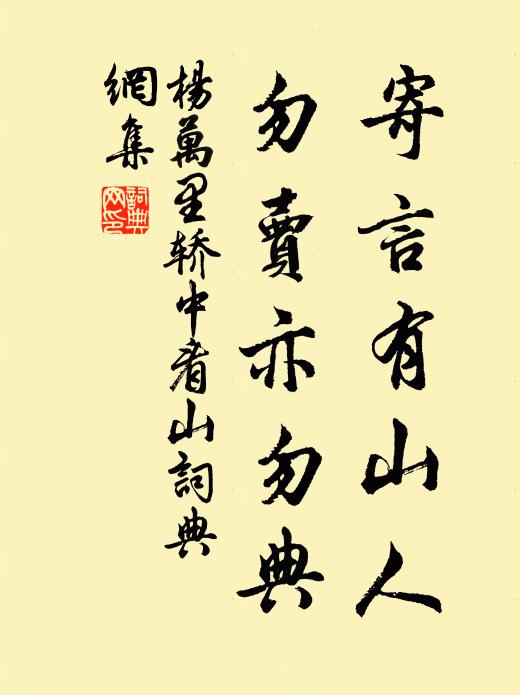 寄言有山人
勿賣亦勿典
楊萬里轿中看山詞典
網集
詞典網印